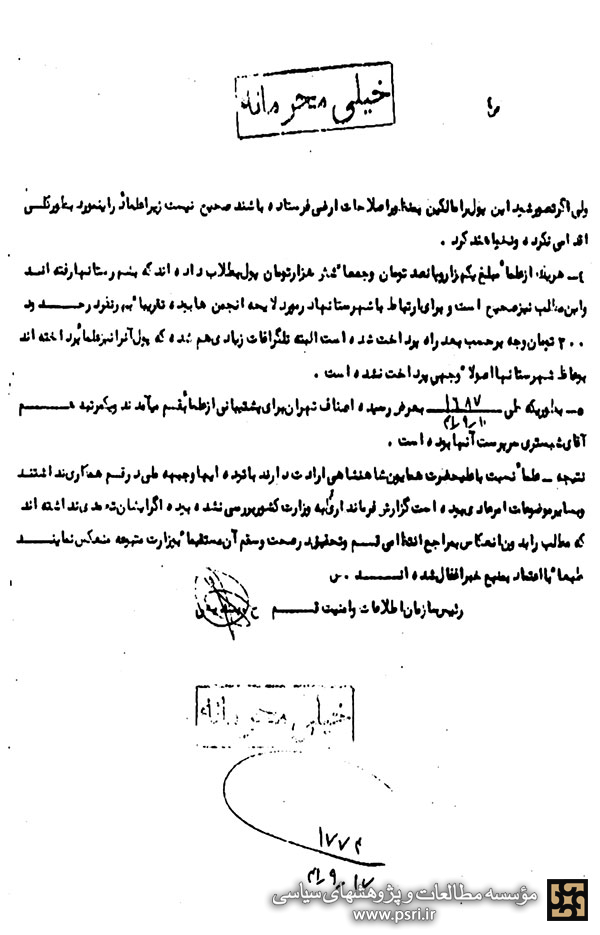 خیلی محرمانه
ولی اگر تصور شود این پول را مالکین بمنظور اصلاحات ارضی فرستاده باشند صحیح نیست زیرا علماء در اینمورد بطور کلی
اقدامی نکرده و نخواهند کرد .
۴ـ هریک از علماء مبلغ یکهزار و پانصد تومان و جمعاً شش هزار تومان پول بطلاب داده اند که بشهرستانها رفته اند
و این مطالب نیز صحیح است و برای ارتباط با شهرستانها در مورد لایحه انجمن ها بوده تقریباً بهر نفر حدود
۲۰۰ تومان وجه بر حسب بعد راه پرداخت شده است البته تلگرافات زیادی هم شده که پول آنرا نیز علماء پرداخته اند
بوعاظ شهرستانها اصولاً وجهی پرداخت نشده است .
۵ـ بطوریکه طی ۱۶۸۷ بعرض رسیده اصناف تهران برای پشتیبانی از علماء بقم میآمدند و یکمرتبه هم
۴۱/۹/۱۰
آقای شبستری سرپرست آنها بوده است .
نتیجه ـ علماء نسبت باعلیحضرت همایون شاهنشاهی ارادت دارند
و سایر موضوعات امر عادی بوده است گزارش فرمانداری به وزارت کشور بررسی نشده بوده اگر ایشان تعمدی نداشته اند
که مطالب را بدون انعکاس بمراجع انتظامی قسم و تحقیق در صحت و سقم آن مستقیماً بوزارت متبوعه منعکس نمایند
طبعاً با اعتماد بمنبع خبر اغفال شده اند . س
رئیس سازمان اطلاعات و امنیت قم
خیلی محرمانه
۱۷۷۴
۴۱/۹/۱۷
مؤسسه مطالعات و پژوهشهای سیاسی
www.psri.ir